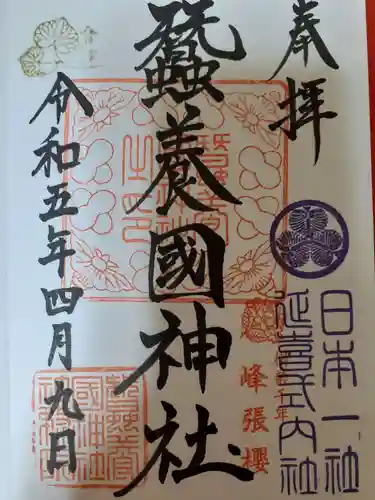 奉拝
日本一社
延喜式内社
蠶養國神社
峰張櫻
令和五年四月九日